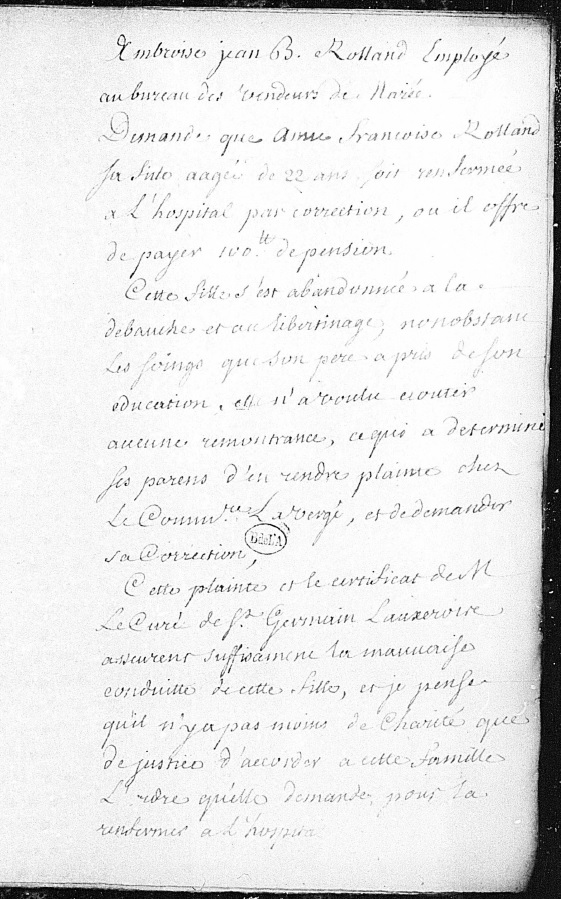 Ambroise jean B. Rolland Employé
au bureau des vendeurs de Marée.
Demande que Anne francoise Rolland
sa fille aagée de 22 ans soit renfermée
a L'hospital par correction, ou il offre
de payer 100.tt de pension.
Cette fille s'est abandonnée a la
debauche et au libertinage, nonobstant
les soings que son pere a pris de son
education, elle n'a voulu ecouter
aucune remontrance, ce qui a determiné
ses parens d'en rendre plainte chez
Le Commre Lavergé, et de demander
sa Correction,
BdeL'A
Cette plainte et le certificat de M
Le Curé de St. Germain Lauxeroire
asseurent suffisament la mauvaise
conduitte de cette fille, et je pense
qu'il n'y a pas moins de Charité que
de justice d'accorder a cette famille
L'ordre qu'elle demande pour la
renfermer a L'hospital